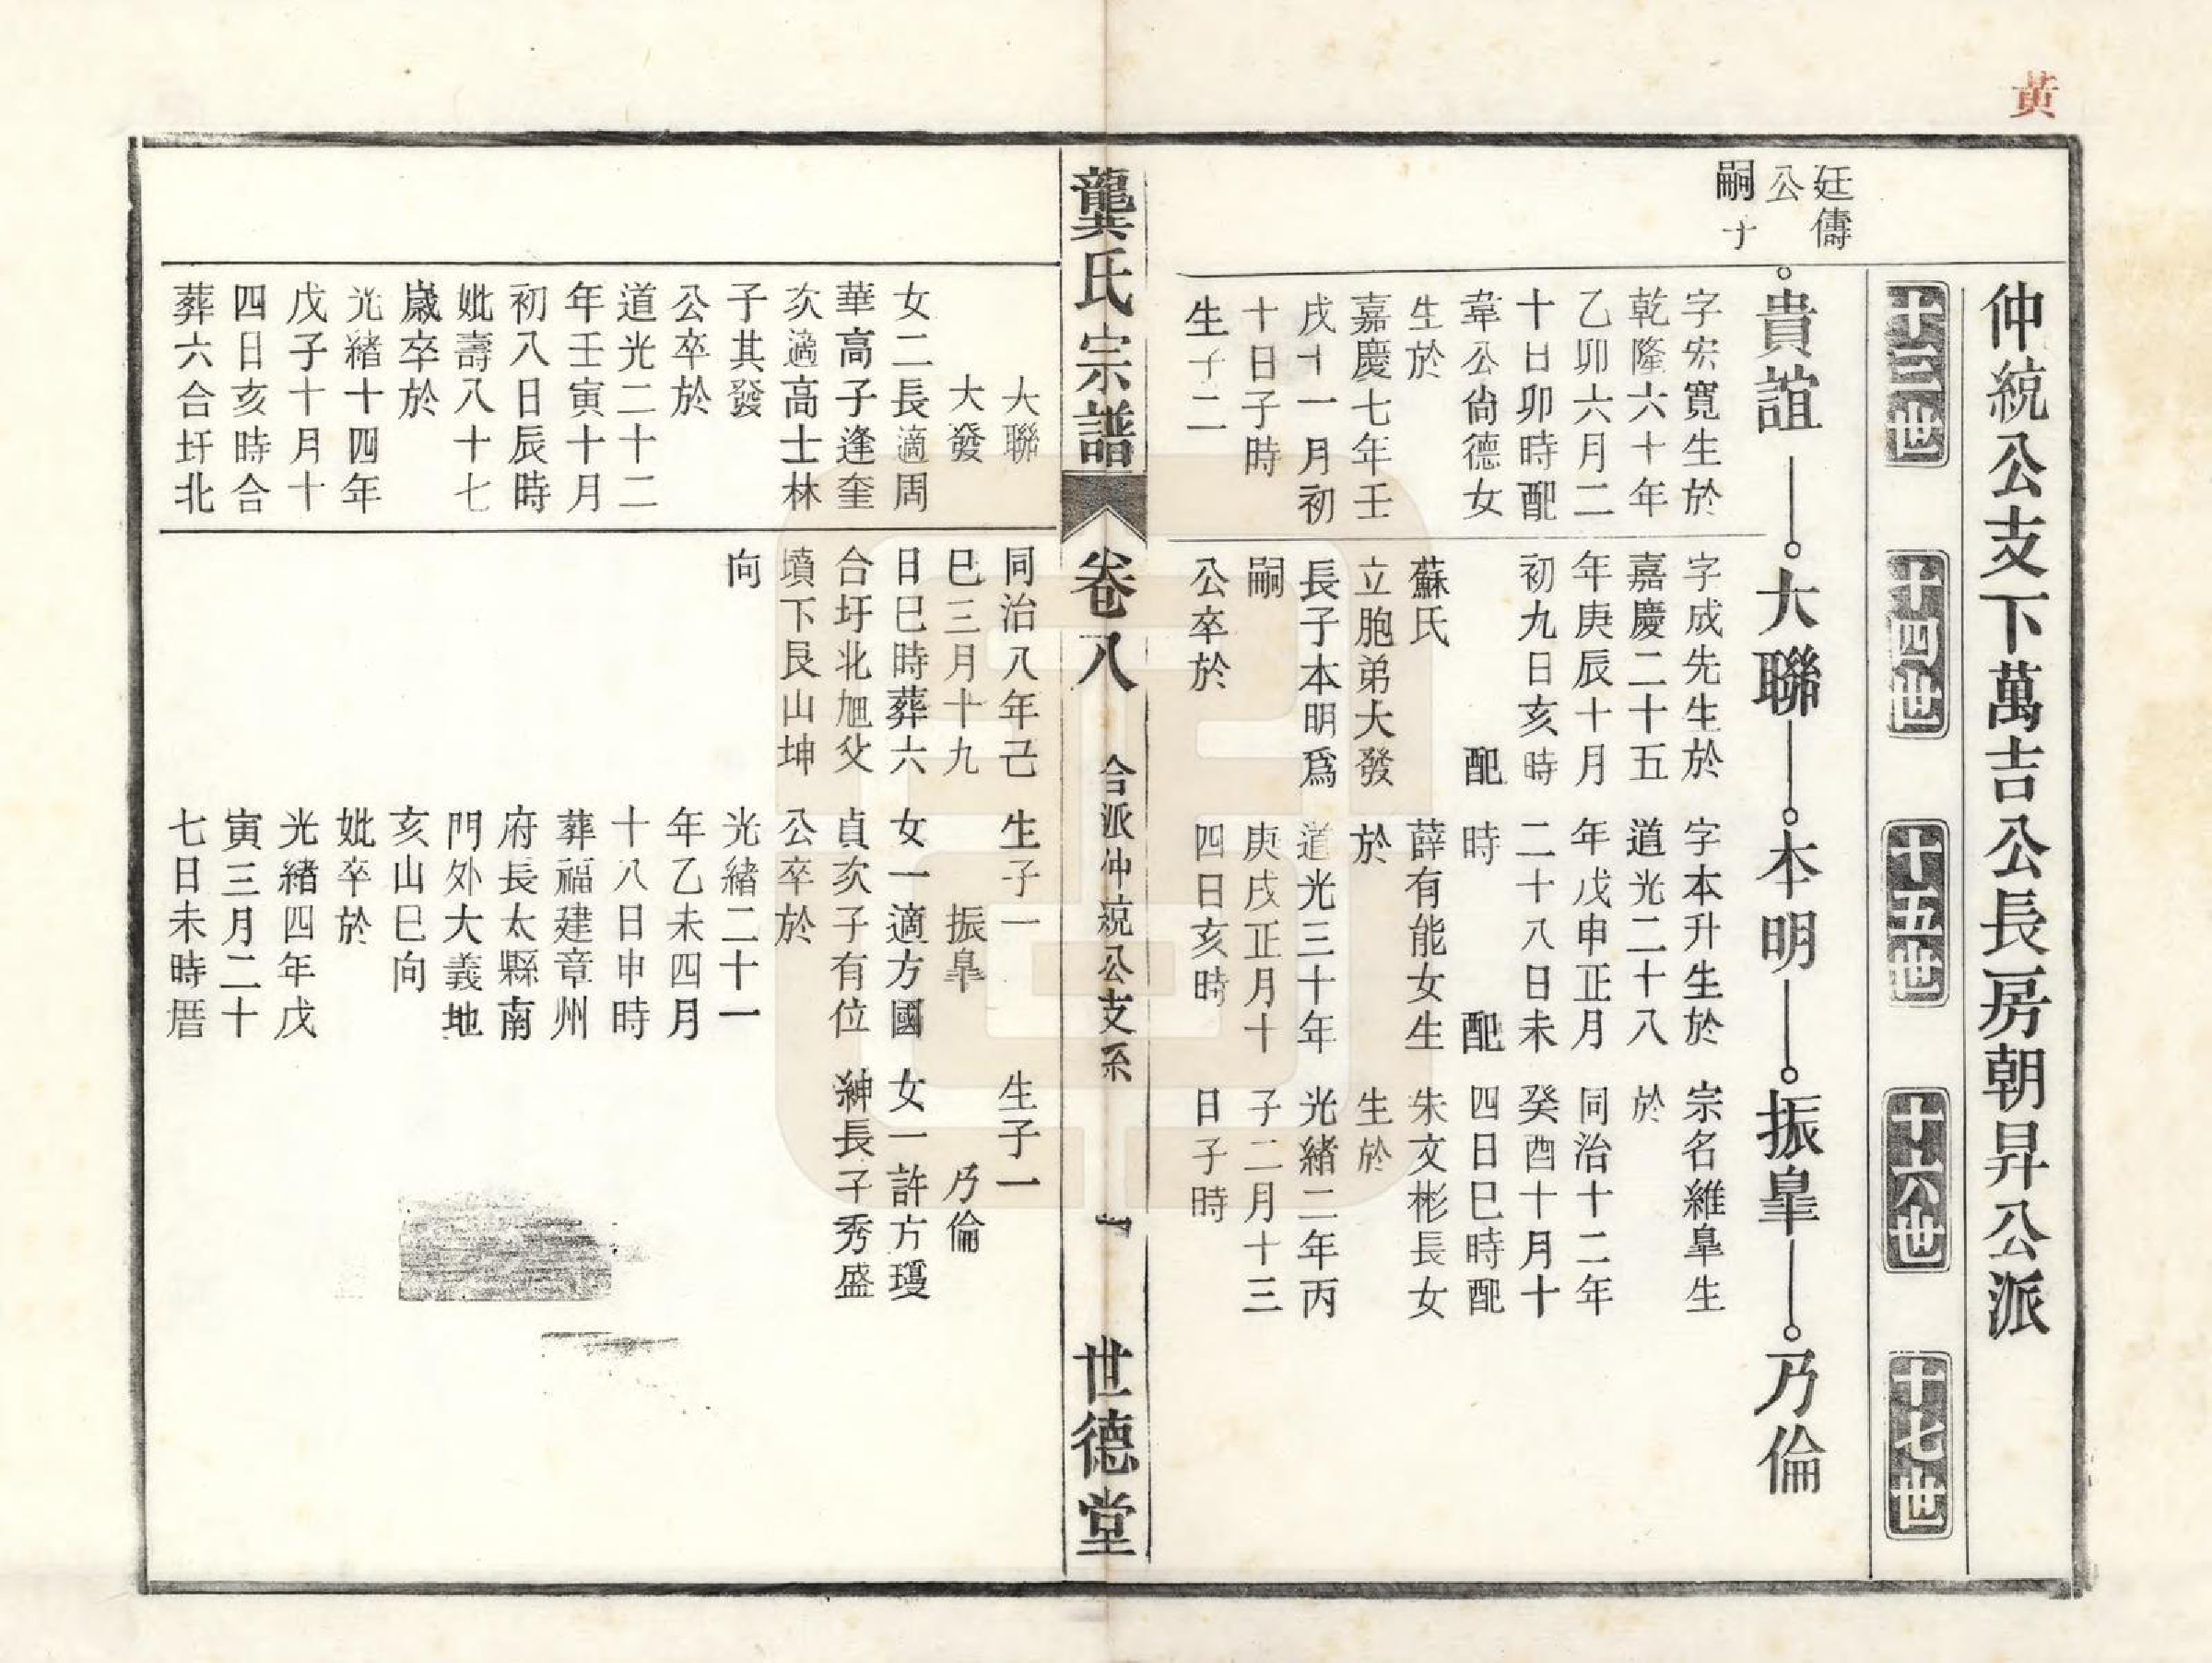 黃
仲統公支下萬吉公長房朝昇公派
十三世
十四世
十五世
十六世
十七世
廷儔
公
嗣子
貴誼
大聯
本明
振臯
乃倫
字宏寬生於
乾隆六十年
乙卯六月二
十日卯時配
韋公尙德女
生於
嘉慶七年壬
戌十一月初
十日子時
生子二
字成先生於
嘉慶二十五
年庚辰十月
初九日亥時
配
蘇氏
立胞弟大發
長子本明爲
嗣
公卒於
字本升生於
道光二十八
年戊申正月
二十八日未
時　配
薛有能女生
於
道光三十年
庚戌正月十
四日亥時
宗名維臯生
於
同治十二年
癸酉十月十
四日巳時配
朱文彬長女
生於
光緒二年丙
子二月十三
日子時
龔氏宗譜
卷八
合派仲統公支系
一
世德堂
大聯
大發
女二長適周
華高子逢奎
次適高士林
子其發
公卒於
道光二十二
年壬寅十月
初八日辰時
妣壽八十七
歲卒於
光緒十四年
戊子十月十
四日亥時合
葬六合圩北
同治八年己
巳三月十九
日巳時葬六
合圩北旭父
墳下艮山坤
向
生子一
振臯
女一適方國
貞次子有位
公卒於
光緒二十一
年乙未四月
十八日申時
葬福建章州
府長太縣南
門外大義地
亥山巳向
妣卒於
光緒四年戊
寅三月二十
七日未時厝
生子一
乃倫
女一許方瓊
紳長子秀盛